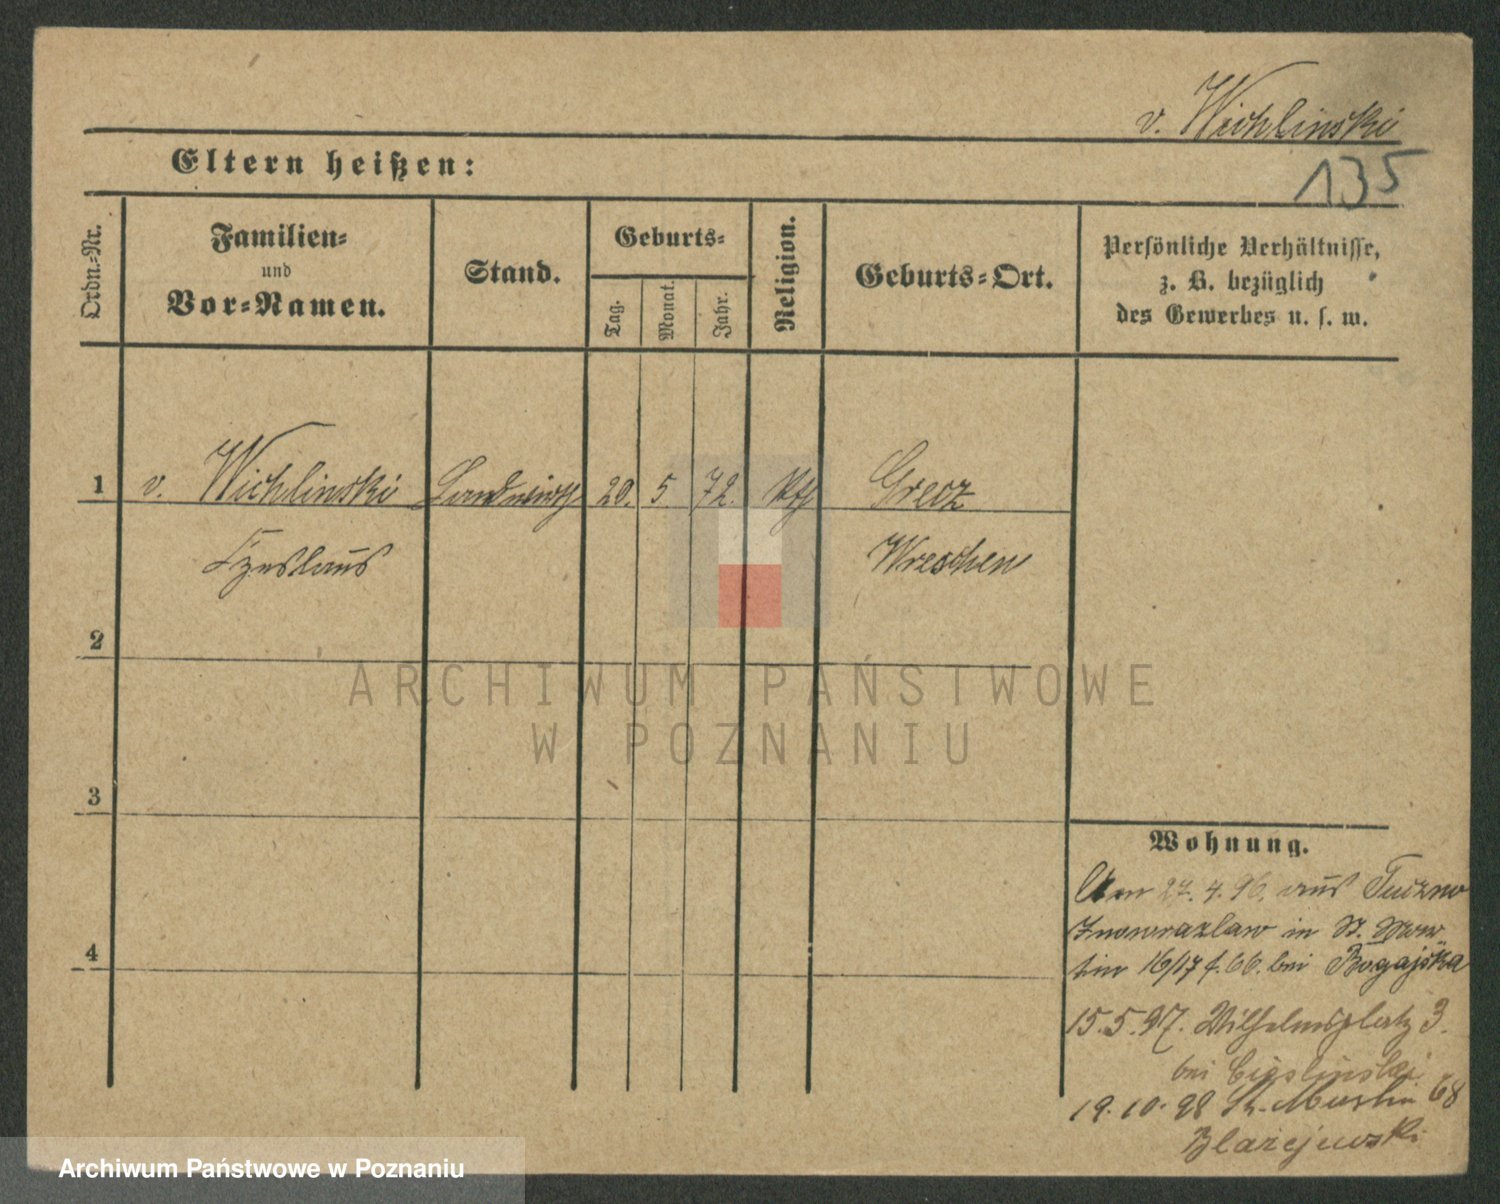 v. Wichlinski
135
Eltern heißen:
Ordn.-Nr.
Familien-
und
Vor-Namen.
Stand.
Geburts-
Tag.
Monat.
Jahr.
Religion.
Geburts-Ort.
Persönliche Verhältnisse,
z. B. bezüglich
des Gewerbes u. s. w.
1 v. Wichlinski Landwirth 20. 5. 72. Kth Grecz
Czeslaus Wreschen
2
3
4
ARCHIWUM PAŃSTWOWE
W POZNANIU
Wohnung.
Am 27. 4. 96. aus Tuczno
Inowrazlaw in St. Mar-
tin 16/17 bei Bogajska
15. 5. 97. Wilhelmsplatz 3.
bei
19. 10. 98 St. Martin 68
Blazejewski
Archiwum Państwowe w Poznaniu